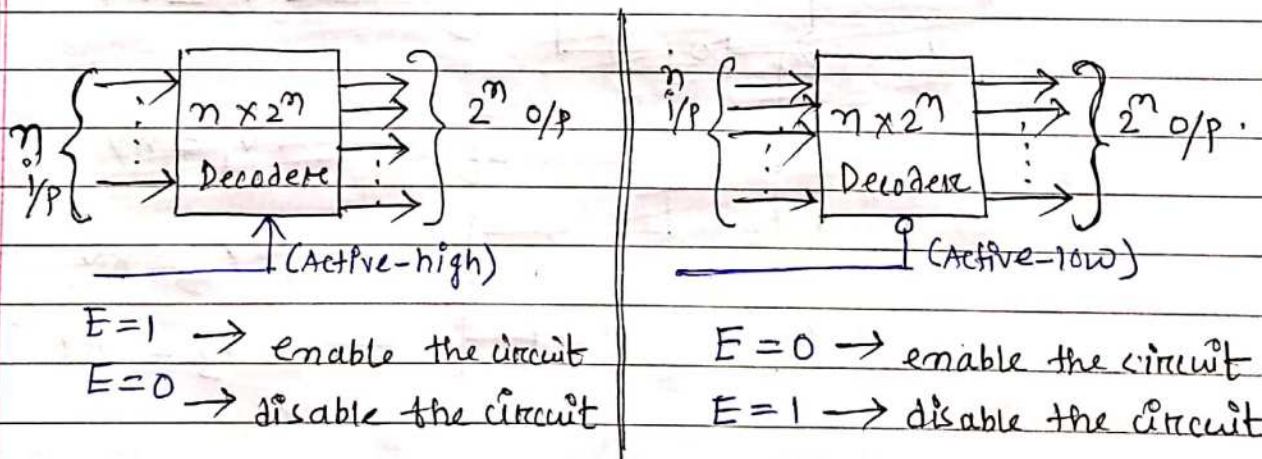 n
i/p
n × 2ⁿ
Decoder
2ⁿ o/p
(Active-high)
E = 1 → enable the circuit
E = 0 → disable the circuit
n
i/p
n × 2ⁿ
Decoder
2ⁿ o/p.
(Active-low)
E = 0 → enable the circuit
E = 1 → disable the circuit